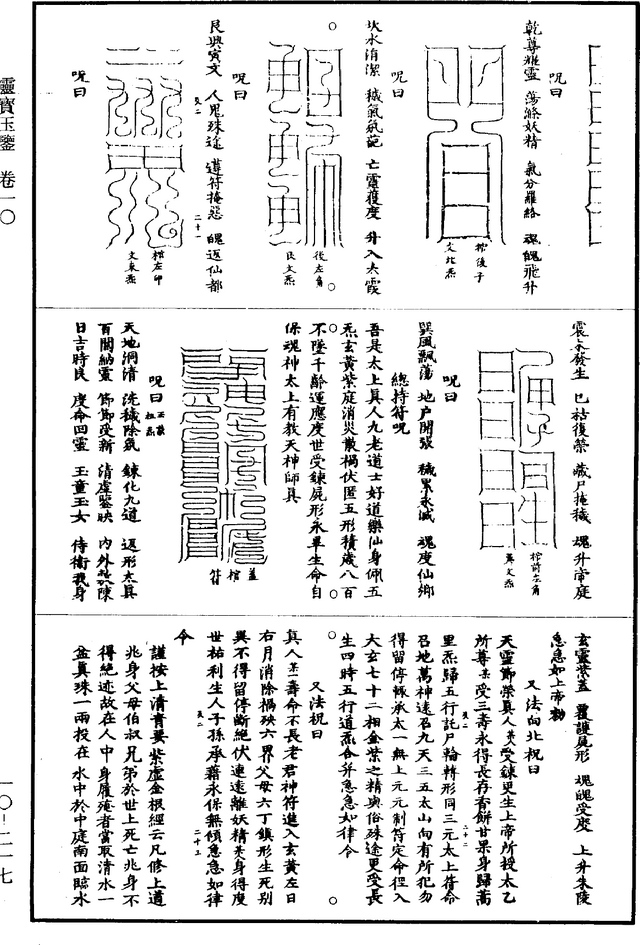 靈寶玉鑒　卷一〇
一〇—二一七
呪曰
乾尊耀靈　蕩滌妖精　氣分羅絡　魂魄飛升
棺後子
文北炁
呪曰
坎水清潔　穢氣氛葩　亡靈獲度　升入太霞
後左角
艮文炁
呪曰
艮與寅文　人鬼殊途　遵符掩惡　魄返仙都
棺左卯
文東炁
呪曰
震木發生　已枯復榮　藏尸掩穢　魂升帝庭
棺前左角
巽文炁
呪曰
巽風飄蕩　地戶開張　穢累永滅　魂度仙鄉
總持符呪
吾是太上真人九老道士好道樂仙身佩五
炁玄黃紫庭消災散禍伏匿五形積歲八百
不墜千齡運應度世受鍊屍形永畢生命自
保魂神太上有教天神師真
蓋
棺
符
呪曰
天地洞清　洗穢除氛　鍊化九道　返形太真
百關納靈　節節受新　清虛鑒映　內外敷陳
日吉時良　度命回靈　玉童玉女　侍衛我身
玄靈紫蓋　覆護屍形　魂魄受度　上升朱陵
急急如上帝勑
又法向北祝曰
天靈節榮真人某受鍊更生上帝所授太乙
所尊某受三壽永得長存香餅甘果身歸蒿
里炁歸五行託尸輪轉形同三元太上符命
召地萬神速召九天三五太山向有所犯勿
得留停輒承太一無上元元制符定命徑入
大玄七十二相金紫之精與俗殊途更受長
生四時五行道炁合并急急如律令
又法祝曰
真人某壽命不長老君神符進入玄黃左日
右月消除禍殃六界父母六丁鎮形生死別
異不得留停斷絕伏連遠離妖精某身得度
世祐利生人子孫承藉永保無傾急急如律
令
謹按上清青要紫虛金根經云凡修上道
兆身父母伯叔兄弟於世上死亡兆身不
得絕迹故在人中身履殗者當取清水一
盆真珠一兩投在水中於中庭南面臨水